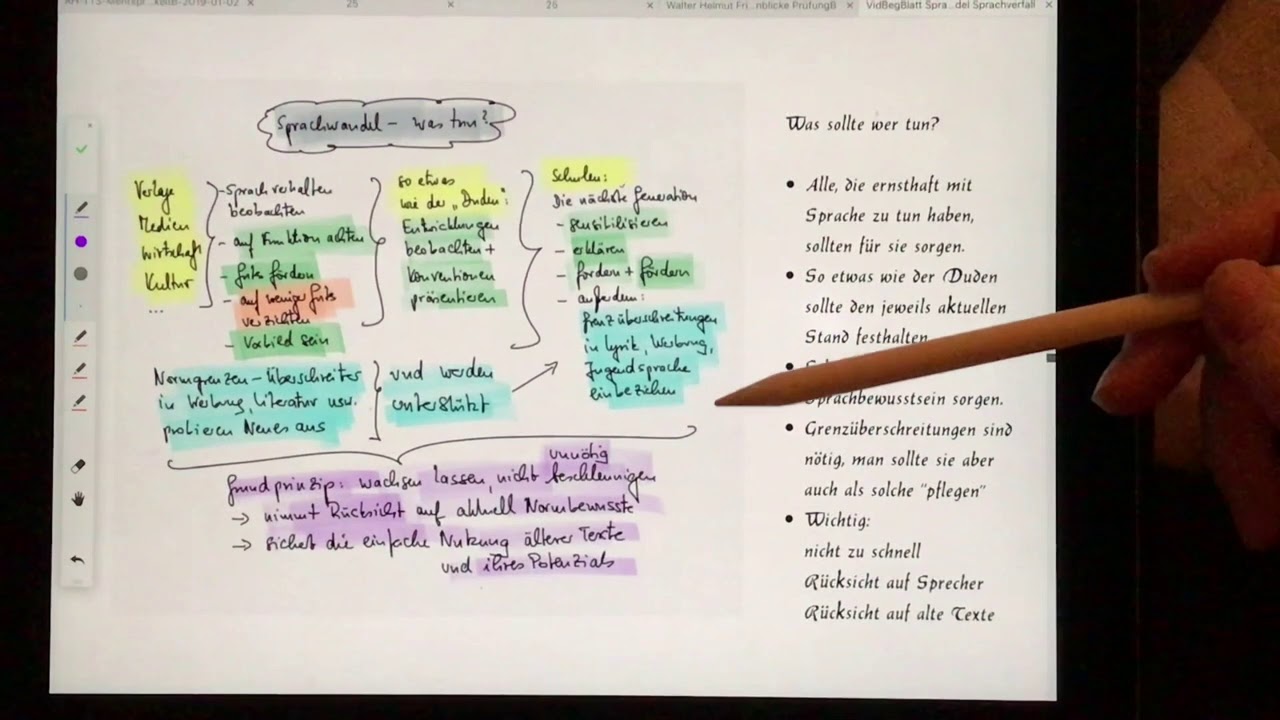 25
26
Walter Helmut Fri...nblicke PrüfungB
VidBegBlatt Spra...del Sprachverfall
Sprachwandel – was tun?
Verlage
Medien
Wirtschaft
Kultur
...
- Sprachverhalten
beobachten
- auf Funktion achten
- Gutes fördern
- auf weniger Gutes
verzichten
- Vorbild sein
so etwas
wie der „Duden":
Entwicklungen
beobachten +
Konventionen
präsentieren
Schulen:
Die nächste Generation
- sensibilisieren
- erklären
- fordern + fördern
- außerdem:
Grenzüberschreitungen
in Lyrik, Werbung,
Jugendsprache
einbeziehen
Normgrenzen-Überschreiter
in Werbung, Literatur usw.
probieren Neues aus
und werden
unterstützt
unnötig
Grundprinzip: wachsen lassen, nicht beschleunigen
→ nimmt Rücksicht auf aktuell Normbewusste
→ sichert die einfache Nutzung älterer Texte
und ihres Potenzials
Was sollte wer tun?
• Alle, die ernsthaft mit
Sprache zu tun haben,
sollten für sie sorgen.
• So etwas wie der Duden
sollte den jeweils aktuellen
Stand festhalten
•
Sprachbewusstsein sorgen.
• Grenzüberschreitungen sind
nötig, man sollte sie aber
auch als solche "pflegen"
• Wichtig:
nicht zu schnell
Rücksicht auf Sprecher
Rücksicht auf alte Texte